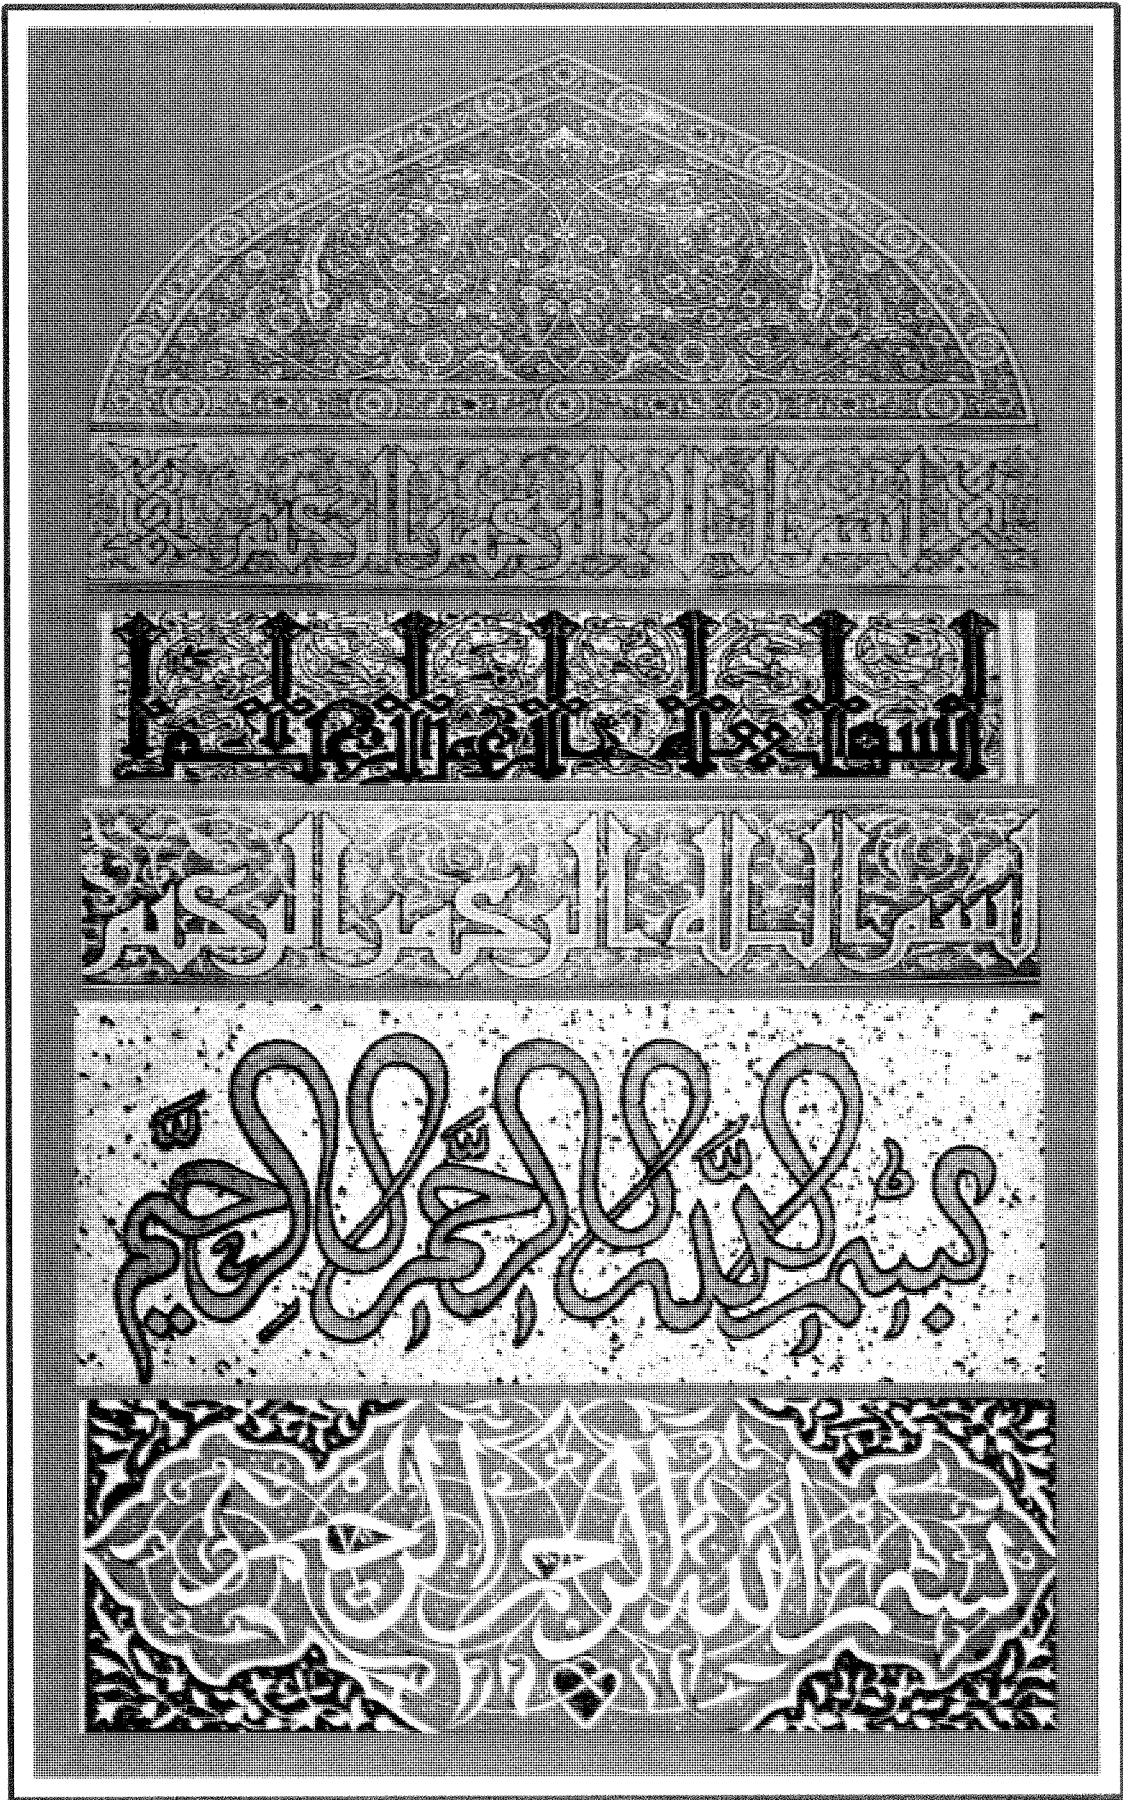 بسم الله الرحمن الرحيم
بسم الله الرحمن الرحيم
بسم الله الرحمن الرحيم
بِسْمِ اللّٰهِ الرَّحْمٰنِ الرَّحِيمِ
بسم الله الرحمن الرحيم